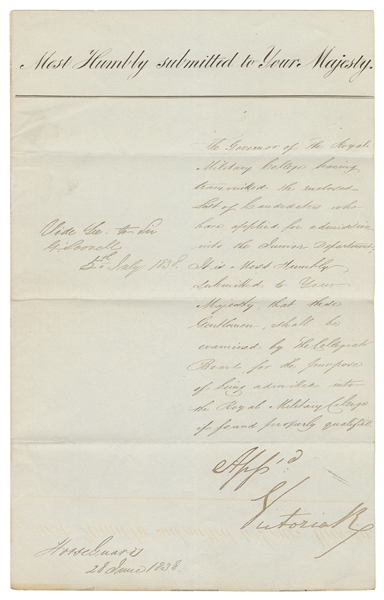 Most Humbly submitted to Your Majesty.
The Governor of The Royal
Military College having
transmitted the enclosed
List of Candidates who
have applied for admission
into the Junior Department,
It is Most Humbly
submitted to Your
Majesty, that these
Gentlemen, shall be
examined by The Collegiate
Board for the purpose
of being admitted into
the Royal Military College
if found properly qualified.
Vide Let. to Sir
G. Scovell
5th July 1838.
App'd
Victoria R
Horse Guards
28 June 1838